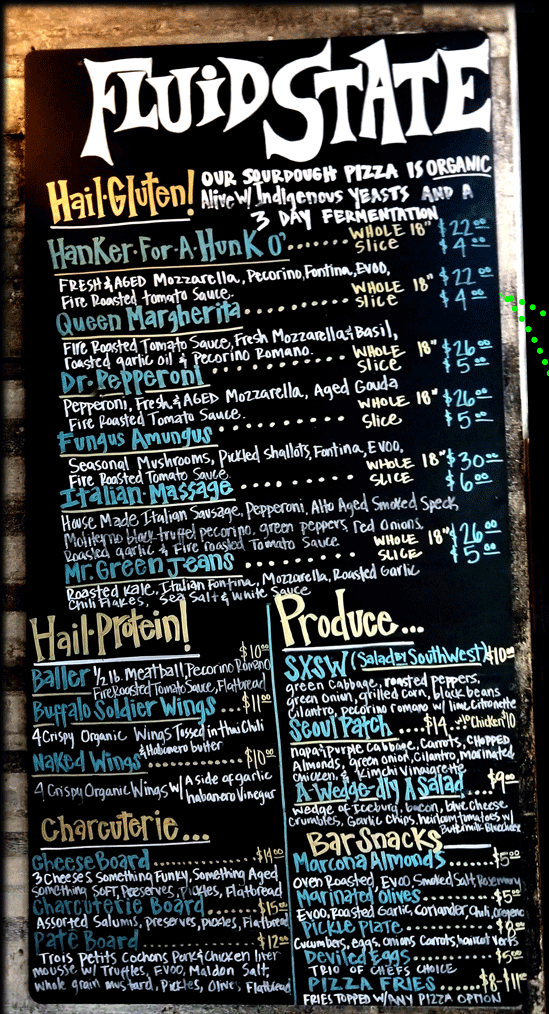 FLUID STATE
Hail·Gluten!
OUR SOURDOUGH PIZZA IS ORGANIC
Alive w/ Indigenous YEASTS AND A
3 DAY FERMENTATION
HanKer·For·A·HunK O' ....... WHOLE 18" $22.00
Slice $4.00
FRESH & AGED Mozzarella, Pecorino, Fontina, EVOO,
Fire Roasted tomato Sauce.
Queen Margherita .......... WHOLE 18" $22.00
Slice $4.00
Fire Roasted Tomato Sauce, Fresh Mozzarella & Basil,
roasted garlic oil & Pecorino Romano.
Dr. Pepperoni .......... WHOLE 18" $26.00
Slice $5.00
Pepperoni, Fresh & AGED Mozzarella, Aged Gouda
Fire Roasted Tomato Sauce.
Fungus Amungus .......... WHOLE 18" $26.00
Slice $5.00
Seasonal Mushrooms, Pickled shallots, Fontina, EVOO,
Fire Roasted Tomato Sauce
Italian Massage .......... WHOLE 18" $30.00
SLICE $6.00
House Made Italian Sausage, Pepperoni, Alto Aged Smoked Speck,
Moliterno black truffel pecorino, green peppers, red onions,
Roasted garlic & Fire roasted Tomato Sauce
Mr. Green Jeans .......... WHOLE 18" $26.00
SLICE $5.00
Roasted Kale, Italian Fontina, Mozzarella, Roasted Garlic
Chili Flakes, Sea Salt & White Sauce
Hail·Protein!
Baller 1/2 lb. Meatball, Pecorino Romano $10.00
Fire Roasted Tomato Sauce, Flatbread
Buffalo Soldier Wings ... $11.00
4 Crispy Organic Wings Tossed in Thai Chili
& Habanero butter
Naked Wings .......... $10.00
4 Crispy Organic Wings w/ A side of garlic
habanero Vinegar
Charcuterie...
Cheese Board .......... $14.00
3 Cheeses Something Funky, Something Aged,
Something SOFT, Preserves, Pickles, Flatbread
Charcuterie Board ..... $15.00
Assorted Salumis, preserves, pickles, Flatbread
Pate Board .......... $12.00
Trois Petits Cochons Pork & Chicken liver
mousse w/ Truffles, EVOO, Maldon Salt,
whole grain mustard, Pickles, Olives Flatbread
Produce...
SXSW (Salad By Southwest) $10.00
green Cabbage, roasted peppers,
green onion, grilled corn, black beans
Cilantro, pecorino romano w/ lime Citronette
Seoul Patch ..... $14.. w/o Chicken $10
napa & Purple Cabbage, Carrots, CHOPPED
Almonds, green onion, Cilantro, marinated
chicken, & Kimchi Vinaigrette
A Wedge-dly A Salad .... $9.00
Wedge of Iceburg, bacon, blue Cheese
Crumbles, Garlic Chips, heirloom tomatoes w/
Buttermilk Bluecheese
Bar Snacks
Marcona Almonds ....... $5.00
Oven Roasted, EVOO Smoked Salt, Rosemary
Marinated Olives ....... $5.00
Evoo, Roasted Garlic, Coriander, Chili, oregano
PICKLE PLATE ....... $8.00
Cucumbers, eggs, onions Carrots, haricot verts
Deviled Eggs ....... $5.00
TRIO OF CHEFS CHOICE
PIZZA FRIES ....... $8-$11.00
FRIES TOPPED w/ ANY PIZZA OPTION